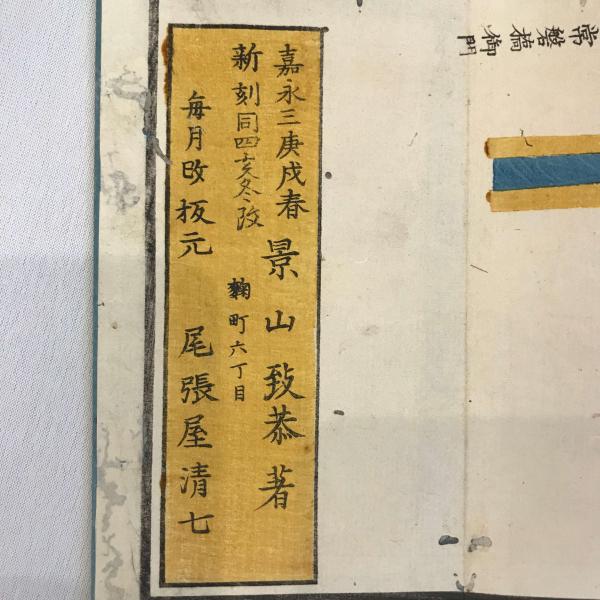 常磐橋御門
嘉永三庚戌春 景山致恭著
新刻同四亥冬改
麹町六丁目
毎月改 板元 尾張屋清七